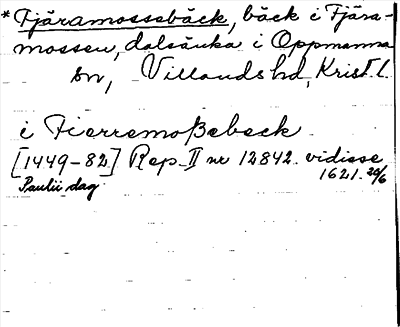 * Tjäramossebäck, bäck i Tjära-
mossen, dalsänka i Oppmanna
sn, Villands hd, Krist. l.
i Tierremoßebeck
[1449-82] Rep. II nr 12842. vidisse
Paulii dag 1621. 20/6